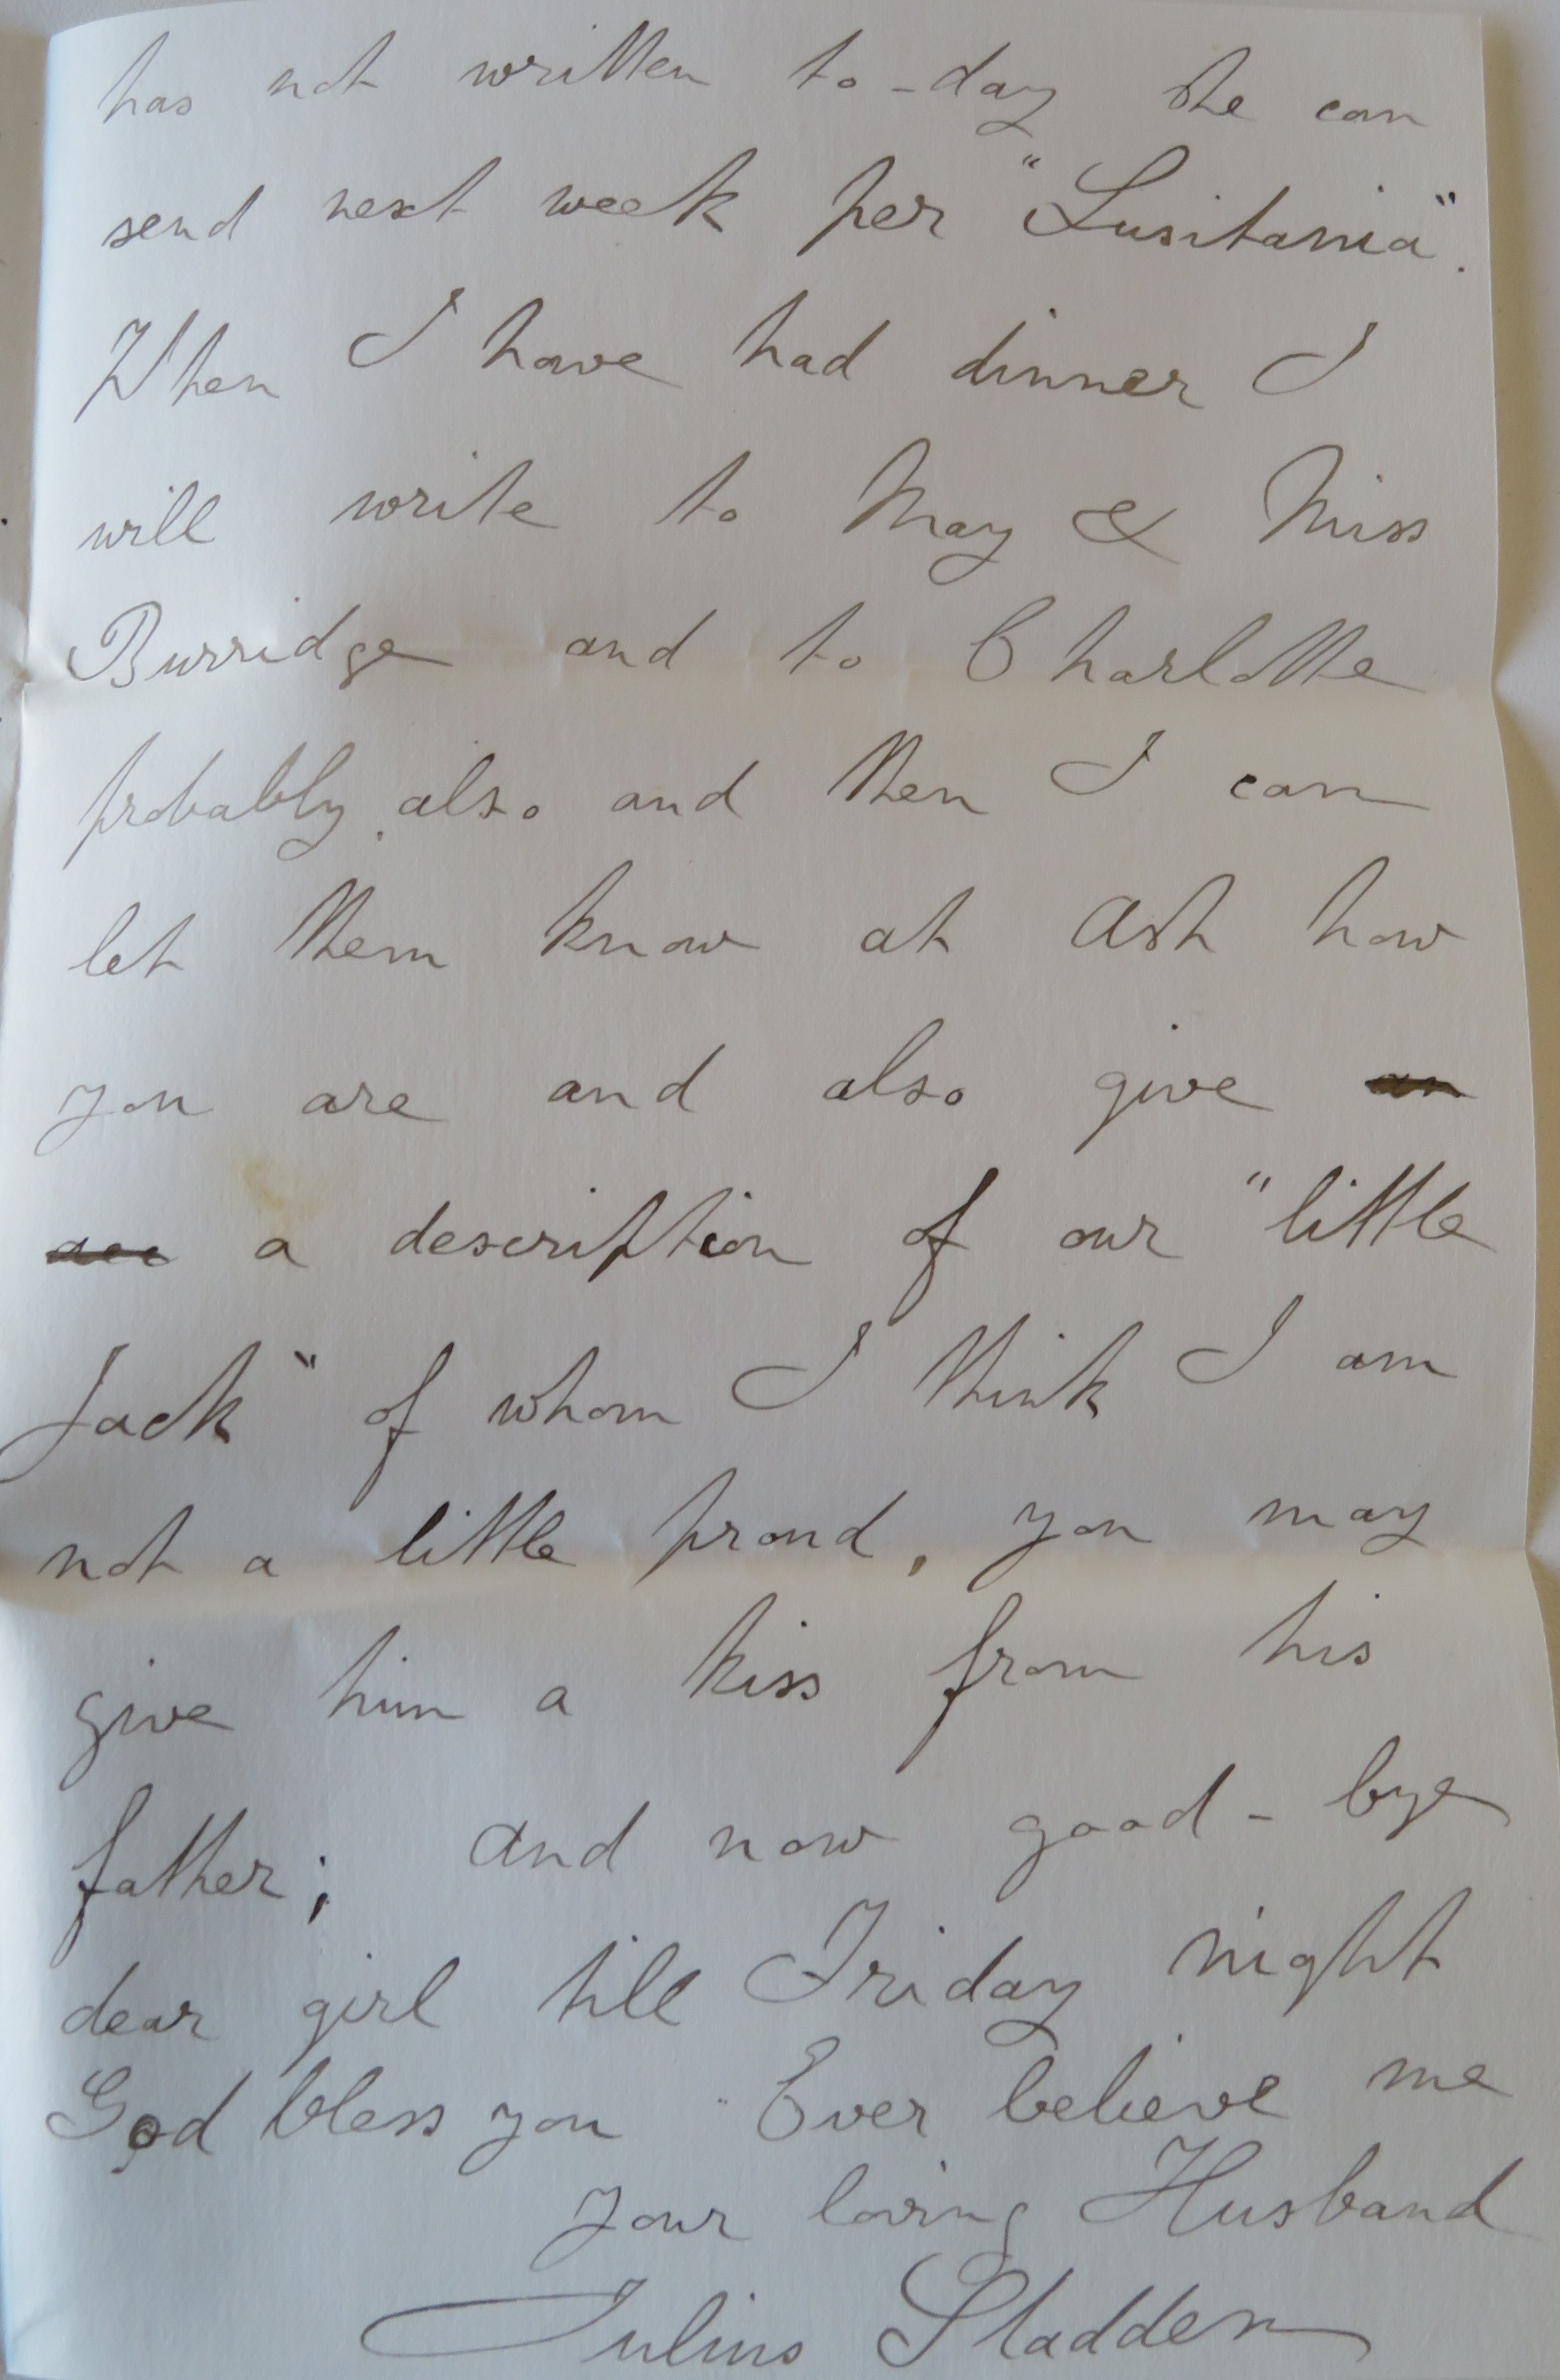 has not written to-day she can
send next week per "Lusitania".
When I have had dinner I
will write to May & Miss
Burridge and to Charlotte
probably also and then I can
let them know at Ash how
you are and also give an
a description of our "little
Jack" of whom I think I am
not a little proud, you may
give him a kiss from his
father; and now good-bye
dear girl till Friday night
God bless you Ever believe me
your loving Husband
Julius Sladden